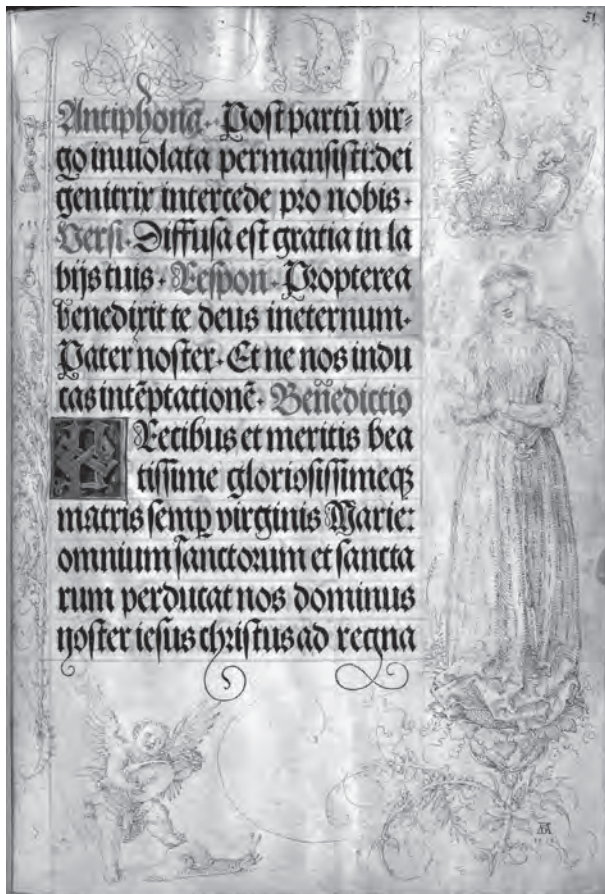 51
Antiphona. Post partū vir⸗
go inuiolata permansisti: dei
genitrix intercede pro nobis.
Versi. Diffusa est gratia in la
bijs tuis. Respon. Propterea
benedixit te deus ineternum.
Pater noster. Et ne nos indu
cas intēptationē. Benedictio
PRecibus et meritis bea
tissime gloriosissimeqꝫ
matris semꝑ virginis Marie:
omnium sanctorum et sancta
rum perducat nos dominus
noster iesus christus ad regna
AD